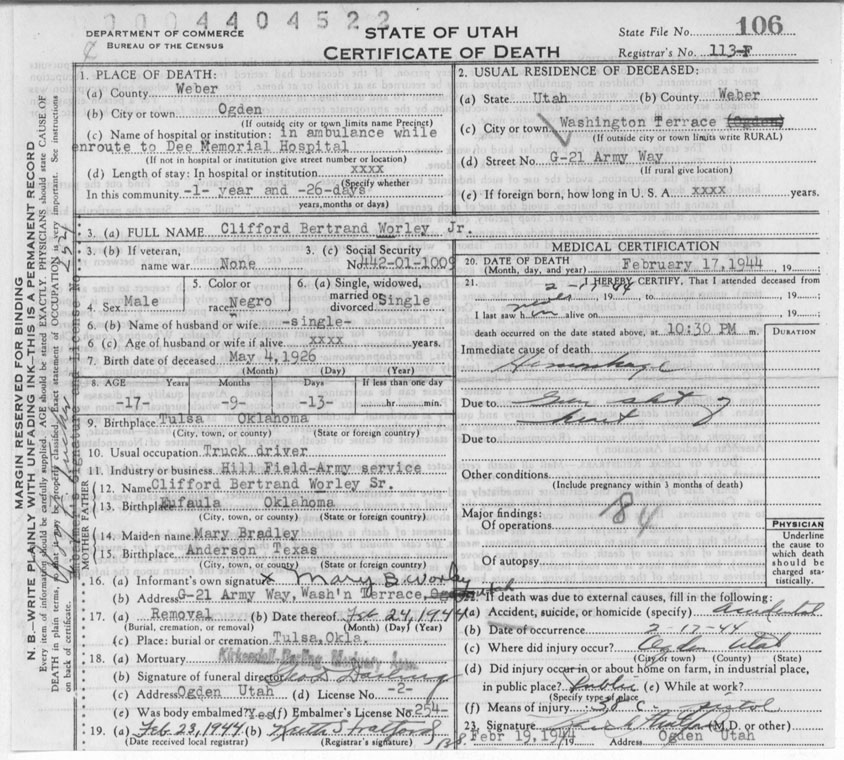 0004404522
DEPARTMENT OF COMMERCE
BUREAU OF THE CENSUS
STATE OF UTAH
CERTIFICATE OF DEATH
State File No. 106
Registrar's No. 113-F
MARGIN RESERVED FOR BINDING
N. B.—WRITE PLAINLY WITH UNFADING INK—THIS IS A PERMANENT RECORD
Every item of information should be carefully supplied. AGE should be stated EXACTLY. PHYSICIANS should state CAUSE OF
DEATH in plain terms, so that it may be properly classified. Exact statement of OCCUPATION is very important. See instructions
on back of certificate.
1. PLACE OF DEATH:
(a) County Weber
(b) City or town Ogden
(If outside city or town limits name Precinct)
(c) Name of hospital or institution: in ambulance while
enroute to Dee Memorial Hospital
(If not in hospital or institution give street number or location)
(d) Length of stay: In hospital or institution xxxx
(Specify whether
In this community -1- year and -26-days
years, months or days)
2. USUAL RESIDENCE OF DECEASED:
(a) State Utah (b) County Weber
(c) City or town Washington Terrace (Ogden)
(If outside city or town limits write RURAL)
(d) Street No. G-21 Army Way
(If rural give location)
(e) If foreign born, how long in U. S. A. xxxx years.
3. (a) FULL NAME Clifford Bertrand Worley Jr.
3. (b) If veteran,
name war None
3. (c) Social Security
No. 442-01-1009
4. Sex Male
5. Color or
race Negro
6. (a) Single, widowed,
married or
divorced Single
6. (b) Name of husband or wife -single-
6 (c) Age of husband or wife if alive xxxx years.
7. Birth date of deceased May 4, 1926
(Month) (Day) (Year)
8. AGE Years Months Days If less than one day
-17- -9- -13- hr. min.
9. Birthplace Tulsa Oklahoma
(City, town, or county) (State or foreign country)
10. Usual occupation Truck driver
11. Industry or business Hill Field-Army service
FATHER
12. Name Clifford Bertrand Worley Sr.
13. Birthplace Eufaula Oklahoma
(City, town, or county) (State or foreign country)
MOTHER
14. Maiden name Mary Bradley
15. Birthplace Anderson Texas
(City, town, or county) (State or foreign country)
16. (a) Informant's own signature x Mary B Worley
(b) Address G-21 Army Way, Wash'n Terrace, Utah
17. (a) Removal (b) Date thereof Feb 24, 1944
(Burial, cremation, or removal) (Month) (Day) (Year)
(c) Place: burial or cremation Tulsa, Okla.
18. (a) Mortuary
(b) Signature of funeral director
(c) Address Ogden Utah (d) License No. -2-
(e) Was body embalmed? Yes (f) Embalmer's License No. 254-
19. (a) Feb 23, 1944 (b)
(Date received local registrar) (Registrar's signature)
MEDICAL CERTIFICATION
20. DATE OF DEATH
(Month, day, and year) February 17, 1944, 19
21. I HEREBY CERTIFY, That I attended deceased from
2-17-44, 19 , to , 19 ;
I last saw him alive on never , 19 ;
death occurred on the date stated above, at 10:30 PM m.
DURATION
Immediate cause of death
Hemorrhage
Due to Gun shot of
heart
Due to
Other conditions
(Include pregnancy within 3 months of death)
Major findings:
Of operations
84
Of autopsy
PHYSICIAN
Underline
the cause to
which death
should be
charged sta-
tistically.
If death was due to external causes, fill in the following:
(a) Accident, suicide, or homicide (specify) accidental
(b) Date of occurrence 2-17-44
(c) Where did injury occur? Ogden Utah
(City or town) (County) (State)
(d) Did injury occur in or about home on farm, in industrial place,
in public place? Public (e) While at work?
(Specify type of place
(f) Means of injury pistol
23. Signature (M.D. or other)
Febr 19, 1944 19 Address Ogden Utah